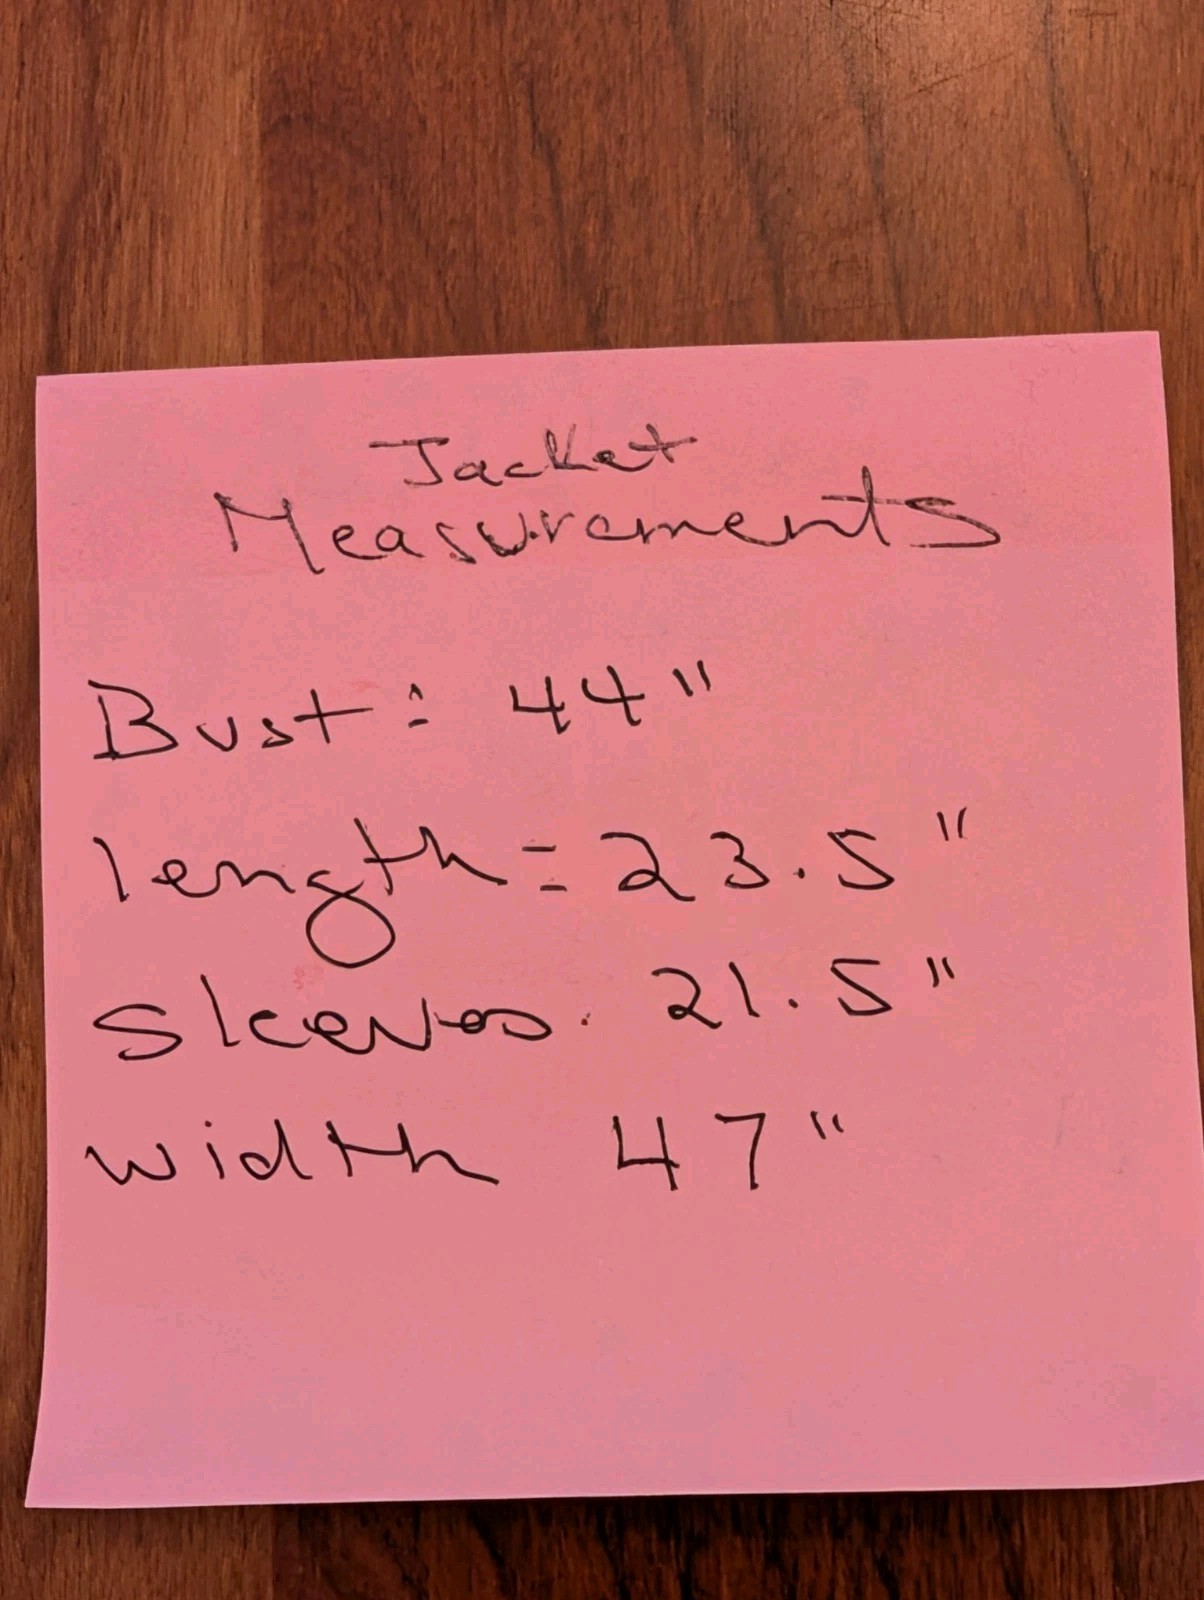 Jacket
Measurements
Bust: 44"
length = 23.5"
sleeves. 21.5"
width 47"